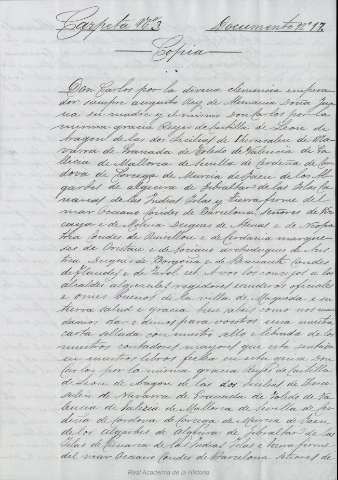 Carpeta Nº 3 Documento nº 17.
Copia
Don Carlos por la divina clemencia empera
dor siempre augusto Rey de Alemania Doña Jua
na su madre y el mismo Don Carlos por la
misma gracia Reyes de Castilla de Leon de
Aragon de las dos Sicilias de Jerusalen de Na
varra de Granada de Toledo de Valencia de Ga
licia de Mallorca de Sevilla de Cerdeña de Cor
dova de Corcega de Murcia de Jaen de los Al
garbes de Algecira de Gibraltar de las Islas Ca
narias de las Indias Islas y tierra firme del
mar Oceano Condes de Barcelona Señores de Viz
caya e de Molina Duques de Atenas e de Neopa
tria Condes de Ruisellon e de Cerdania marque
ses de Oristan e de Gociano Archiduques de Aus
tria Duques de Borgoña e de Bravante Condes
de Flandes e de Tirol etc. A vos los concejos
alcaldes alguaciles regidores caballeros
e omes buenos de la villa de Maqueda e su
tierra salud e gracia bien sabeis como nos man
damos dar e dimos para vosotros una nuestra
carta sellada con nuestro sello e librada de los
nuestros contadores mayores que esta sentada
en nuestros libros fecha en esta guisa Don
Carlos por la misma gracia Rey de Castilla
de Leon de Aragon de las dos Sicilias de Jeru
salen de Navarra de Granada de Toledo de Va
lencia de Galicia de Mallorca de Sevilla de Cer
deña de Cordova de Corcega de Murcia de Jaen
de los Algarbes de Algecira de Gibraltar de las
Islas de Canaria de las Indias Islas e tierra firme
del mar Oceano Condes de Barcelona Señores de
Real Academia de la Historia